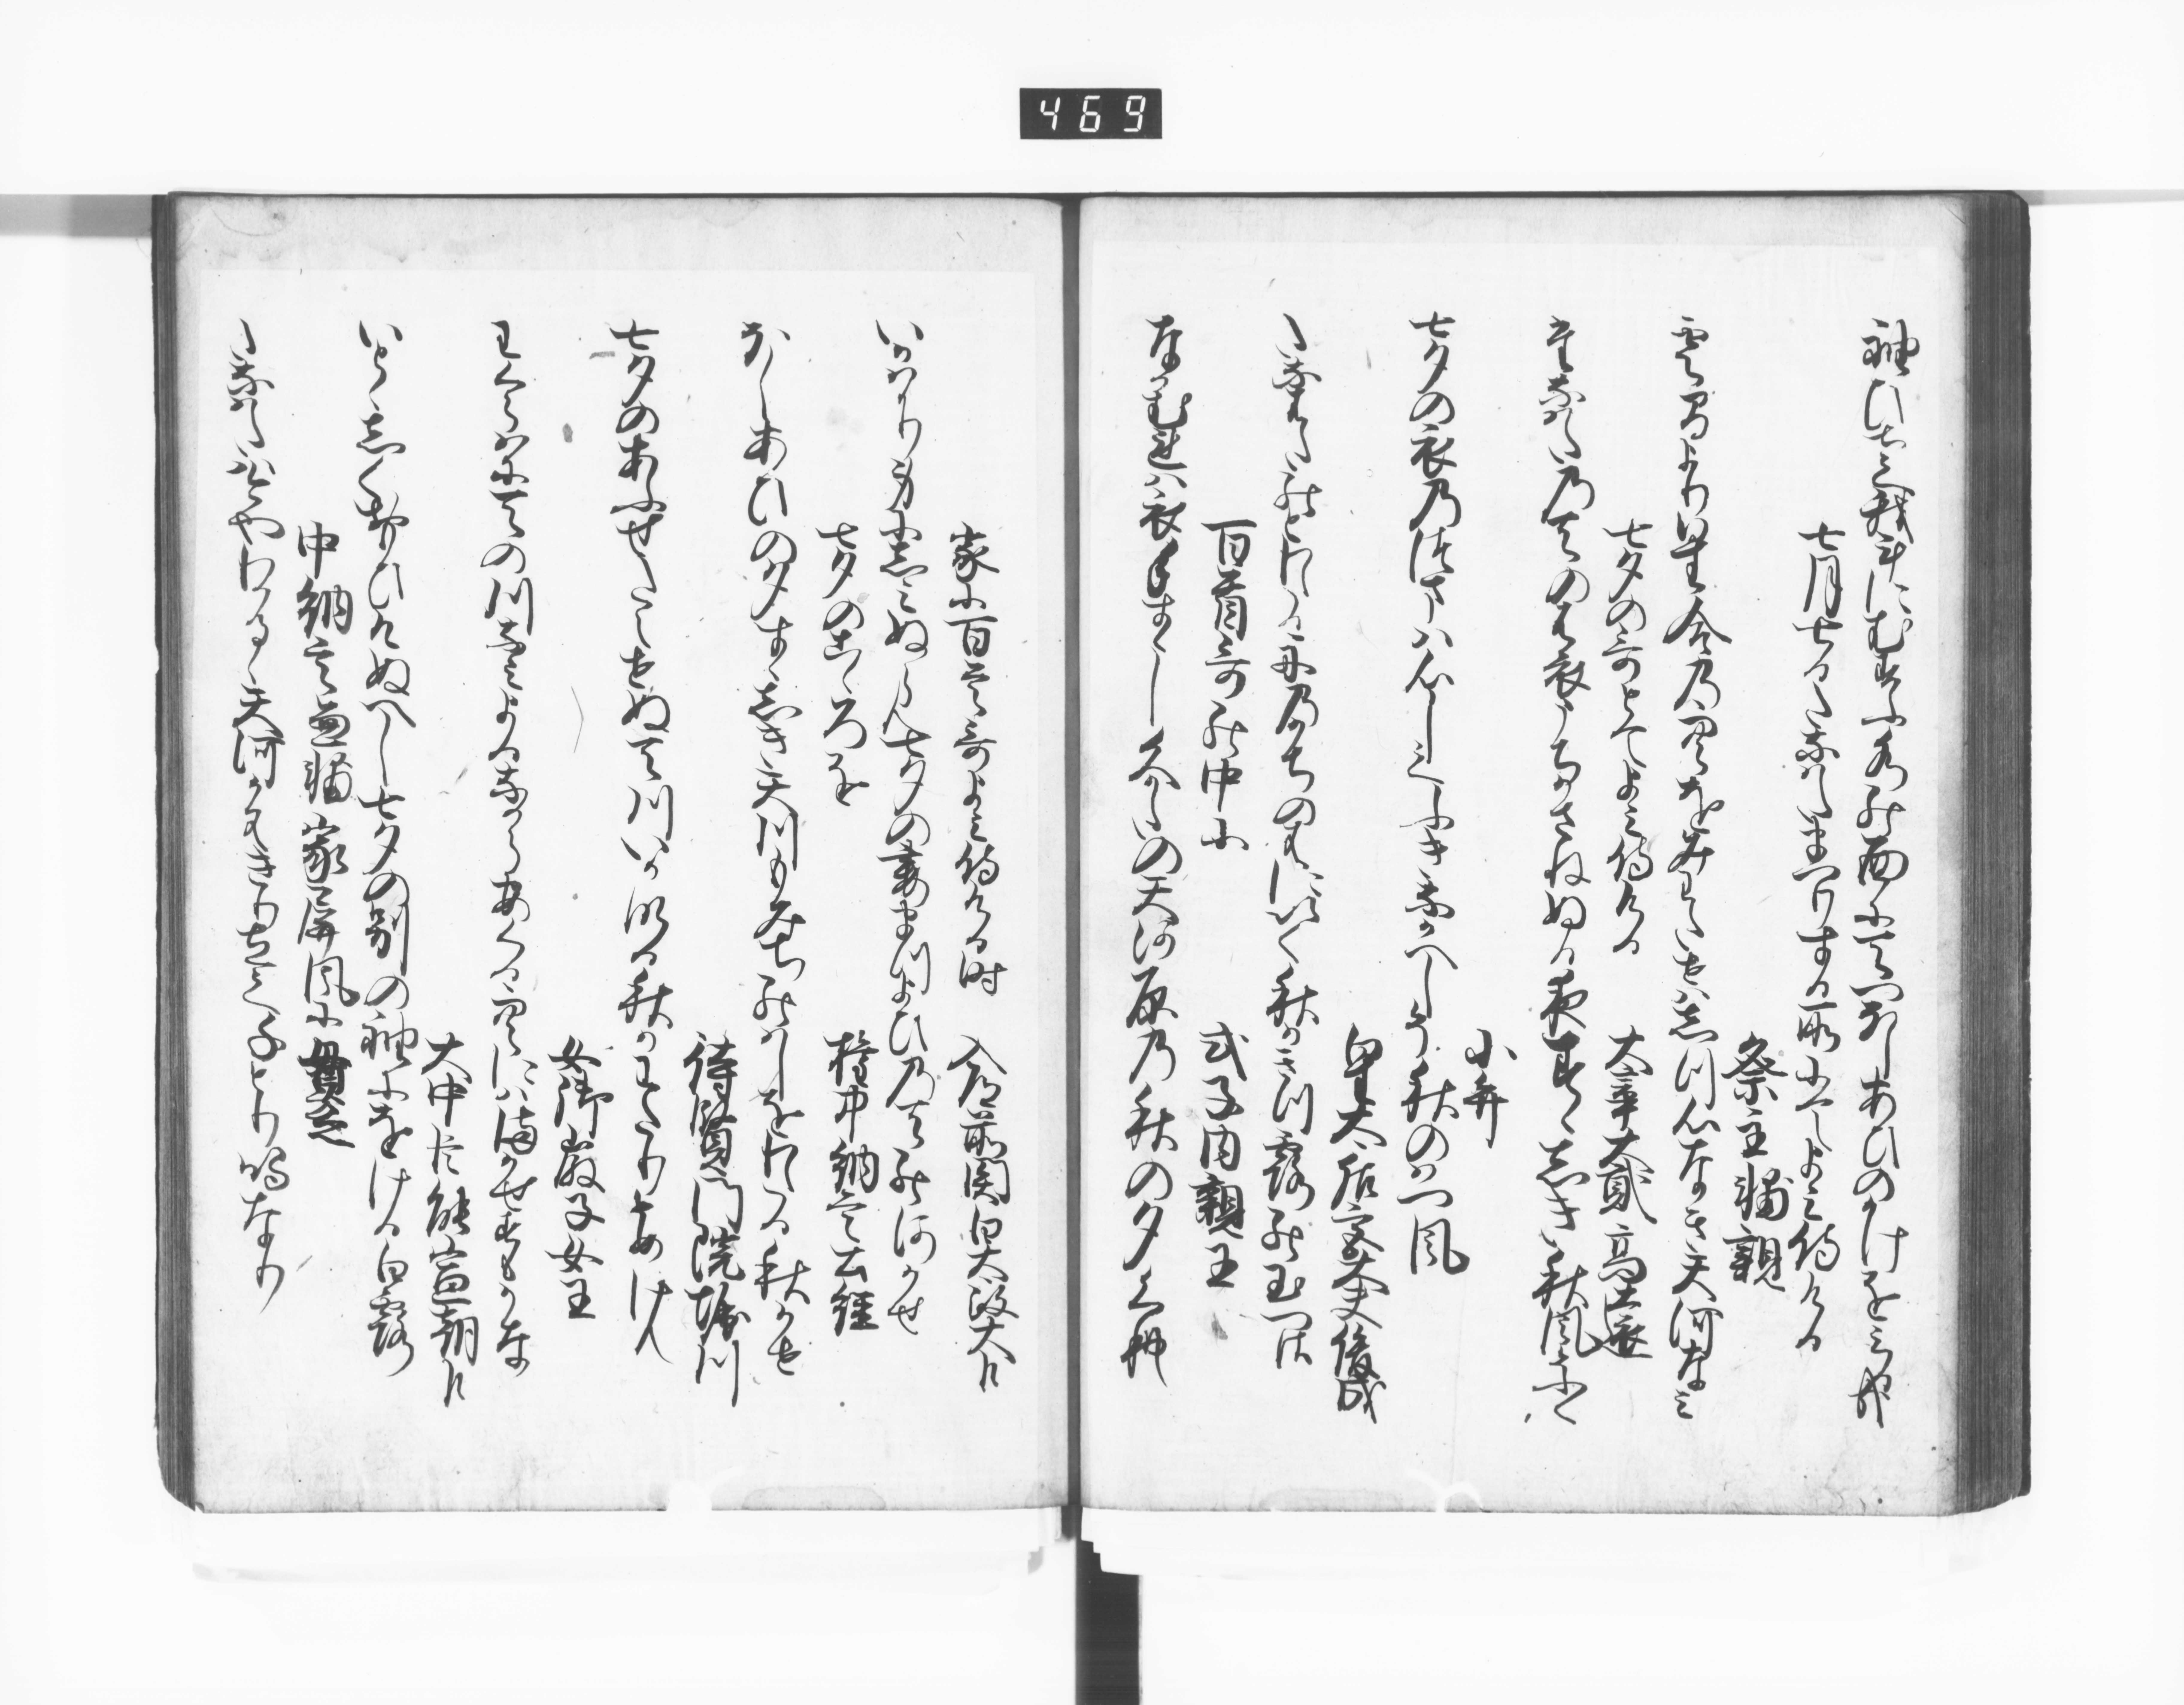 袖ひちて我手にむすふ水の面に天つほしあひのかけをみる哉
七月七日たなはたまつりする所にてよみ侍ける
祭主輔親
雲間より星合の空を見わたせはしつ心なき天河なみ
七夕の哥とてよみ侍ける
大宰大貳高遠
たなはたの天のは衣うちかさねぬる夜すゝしき秋風そふく
小弁
七夕の衣乃つまハ心してふきなかへしそ秋のはつ風
皇太后宮大夫俊成
たなはたのとわたる舟乃かちのはにいく秋かきつ露の玉つさ
百首哥の中に
式子内親王
なかむれハ衣手すゝし久かたの天河原乃秋の夕くれ
家に百首哥よみ侍ける時　入道前関白太政大臣
いかはかり身にしみぬらん七夕の妻まつよひ乃天の河かせ
七夕のこゝろを
権中納言公経
ほしあひの夕すゝしき天川もみちのはしをわたる秋かせ
待賢門院堀川
七夕のあふせたえせぬ天川いかなる秋かわたりそめけん
女御徽子女王
わくらはに天の川浪よるなからあくる空にハまかせすもかな
大中臣能宣朝臣
いとゝしく思ひけぬへし七夕の別の袖にをける白露
中納言兼輔家屏風に　貫之
たなはたは今やわかるゝ天河かはきりたちて千とり鳴なり
469